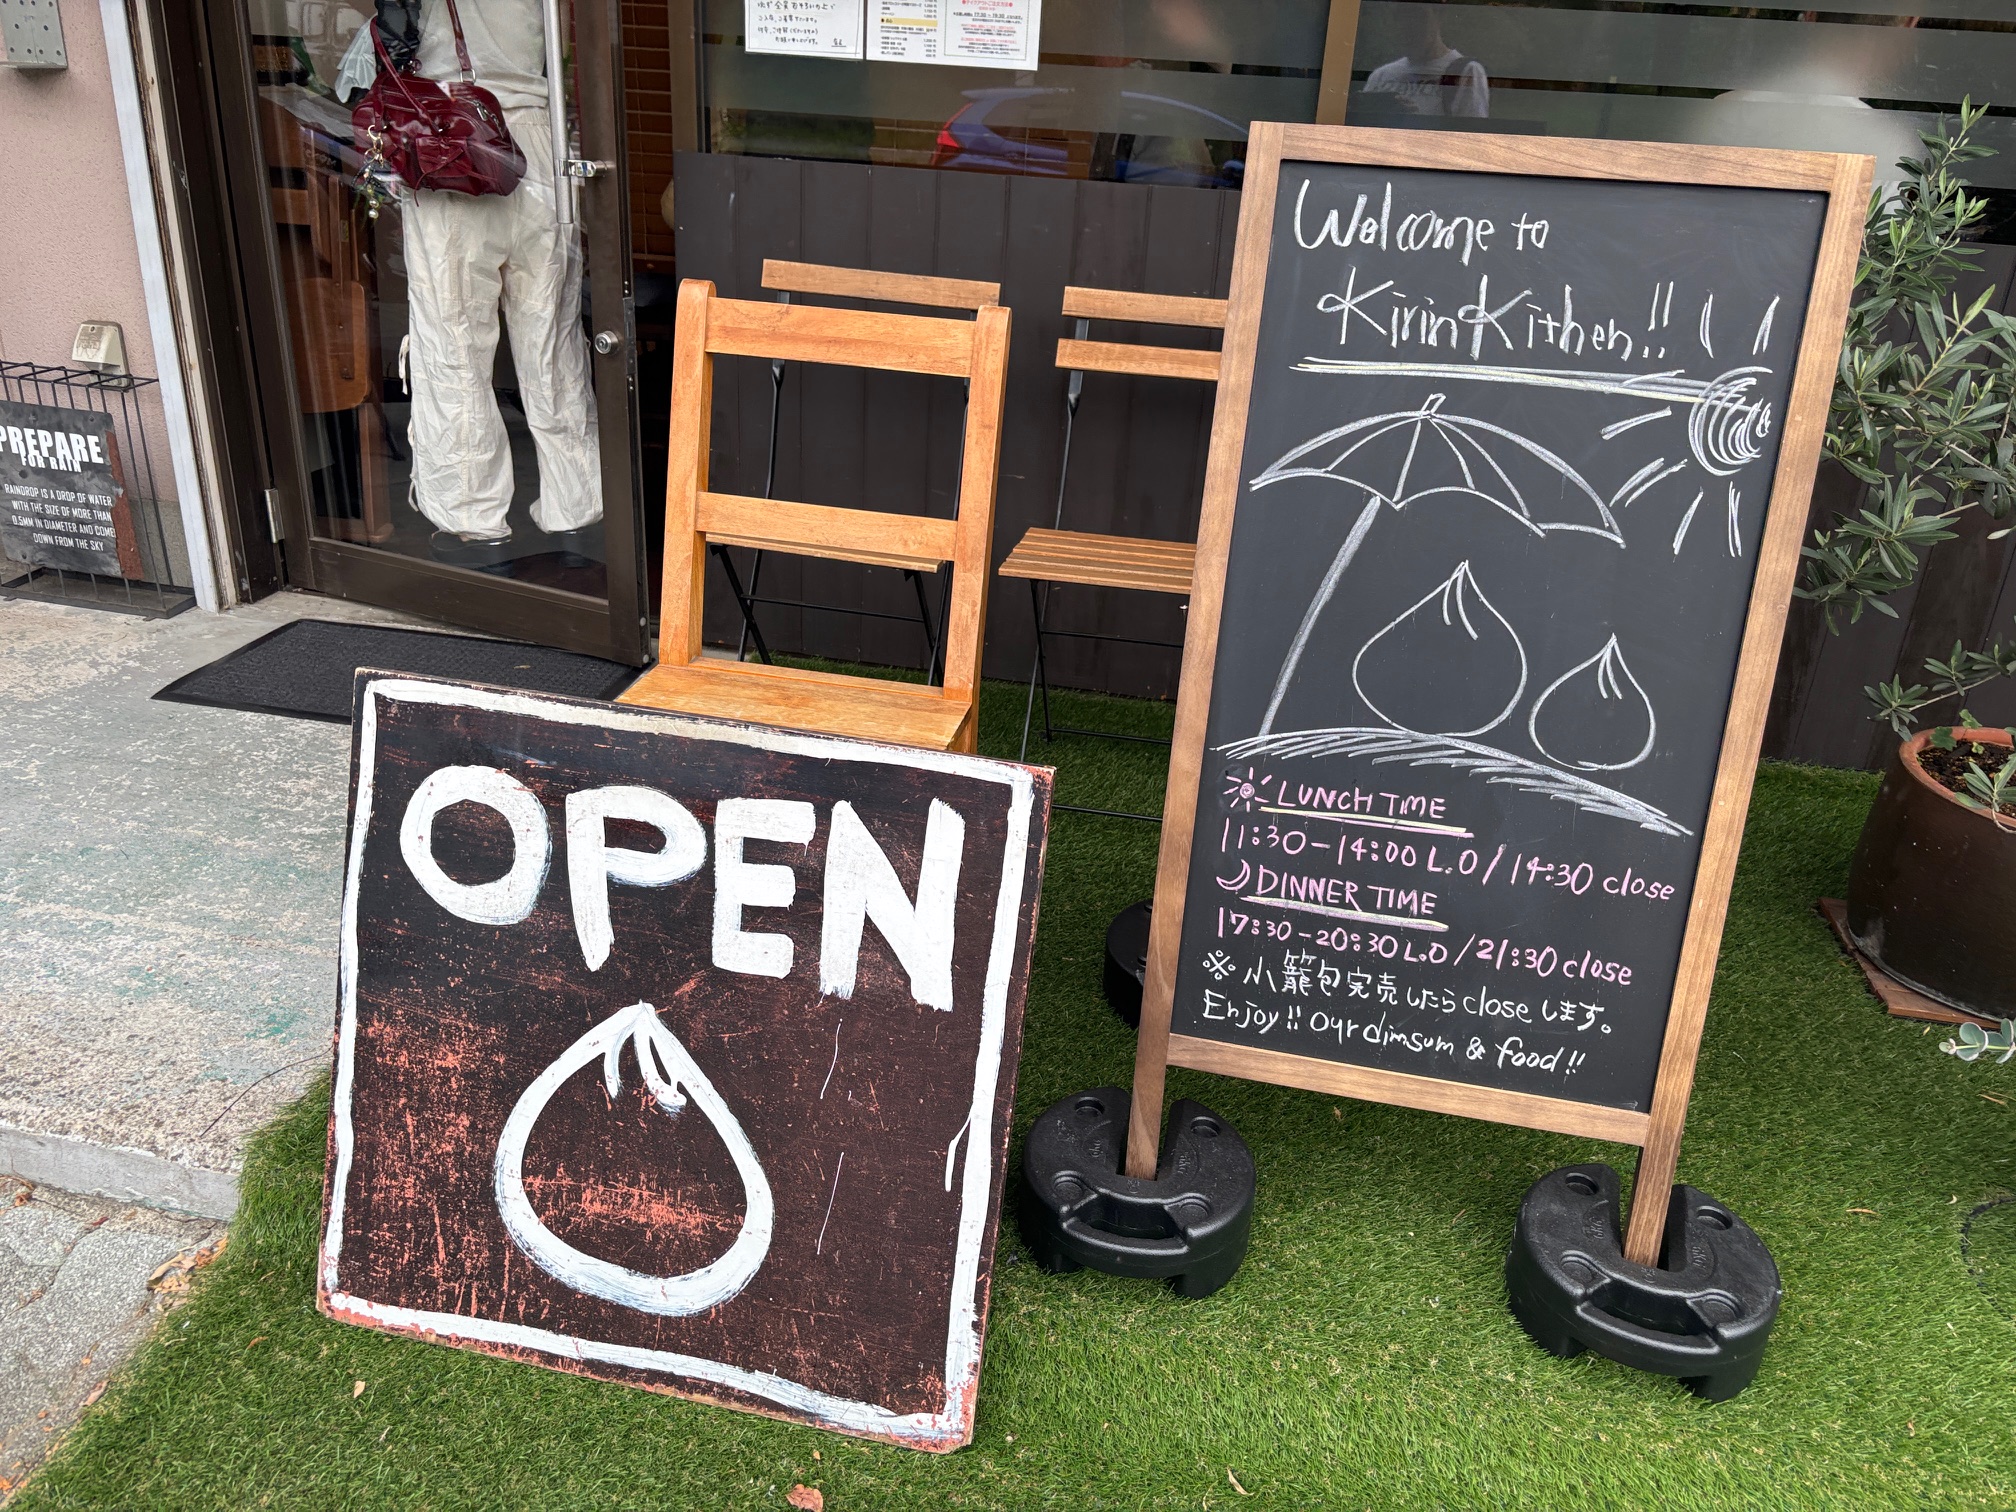 PREPARE
FOR RAIN
RAINDROP IS A DROP OF WATER
WITH THE SIZE OF MORE THAN
0.5MM IN DIAMETER AND COME
DOWN FROM THE SKY
OPEN
Welcome to
KirinKithen!!
LUNCH TIME
11:30-14:00 L.O/14:30 close
DINNER TIME
17:30-20:30 L.O/21:30 close
※小籠包完売したらcloseします。
Enjoy!! Our dimsum & food!!